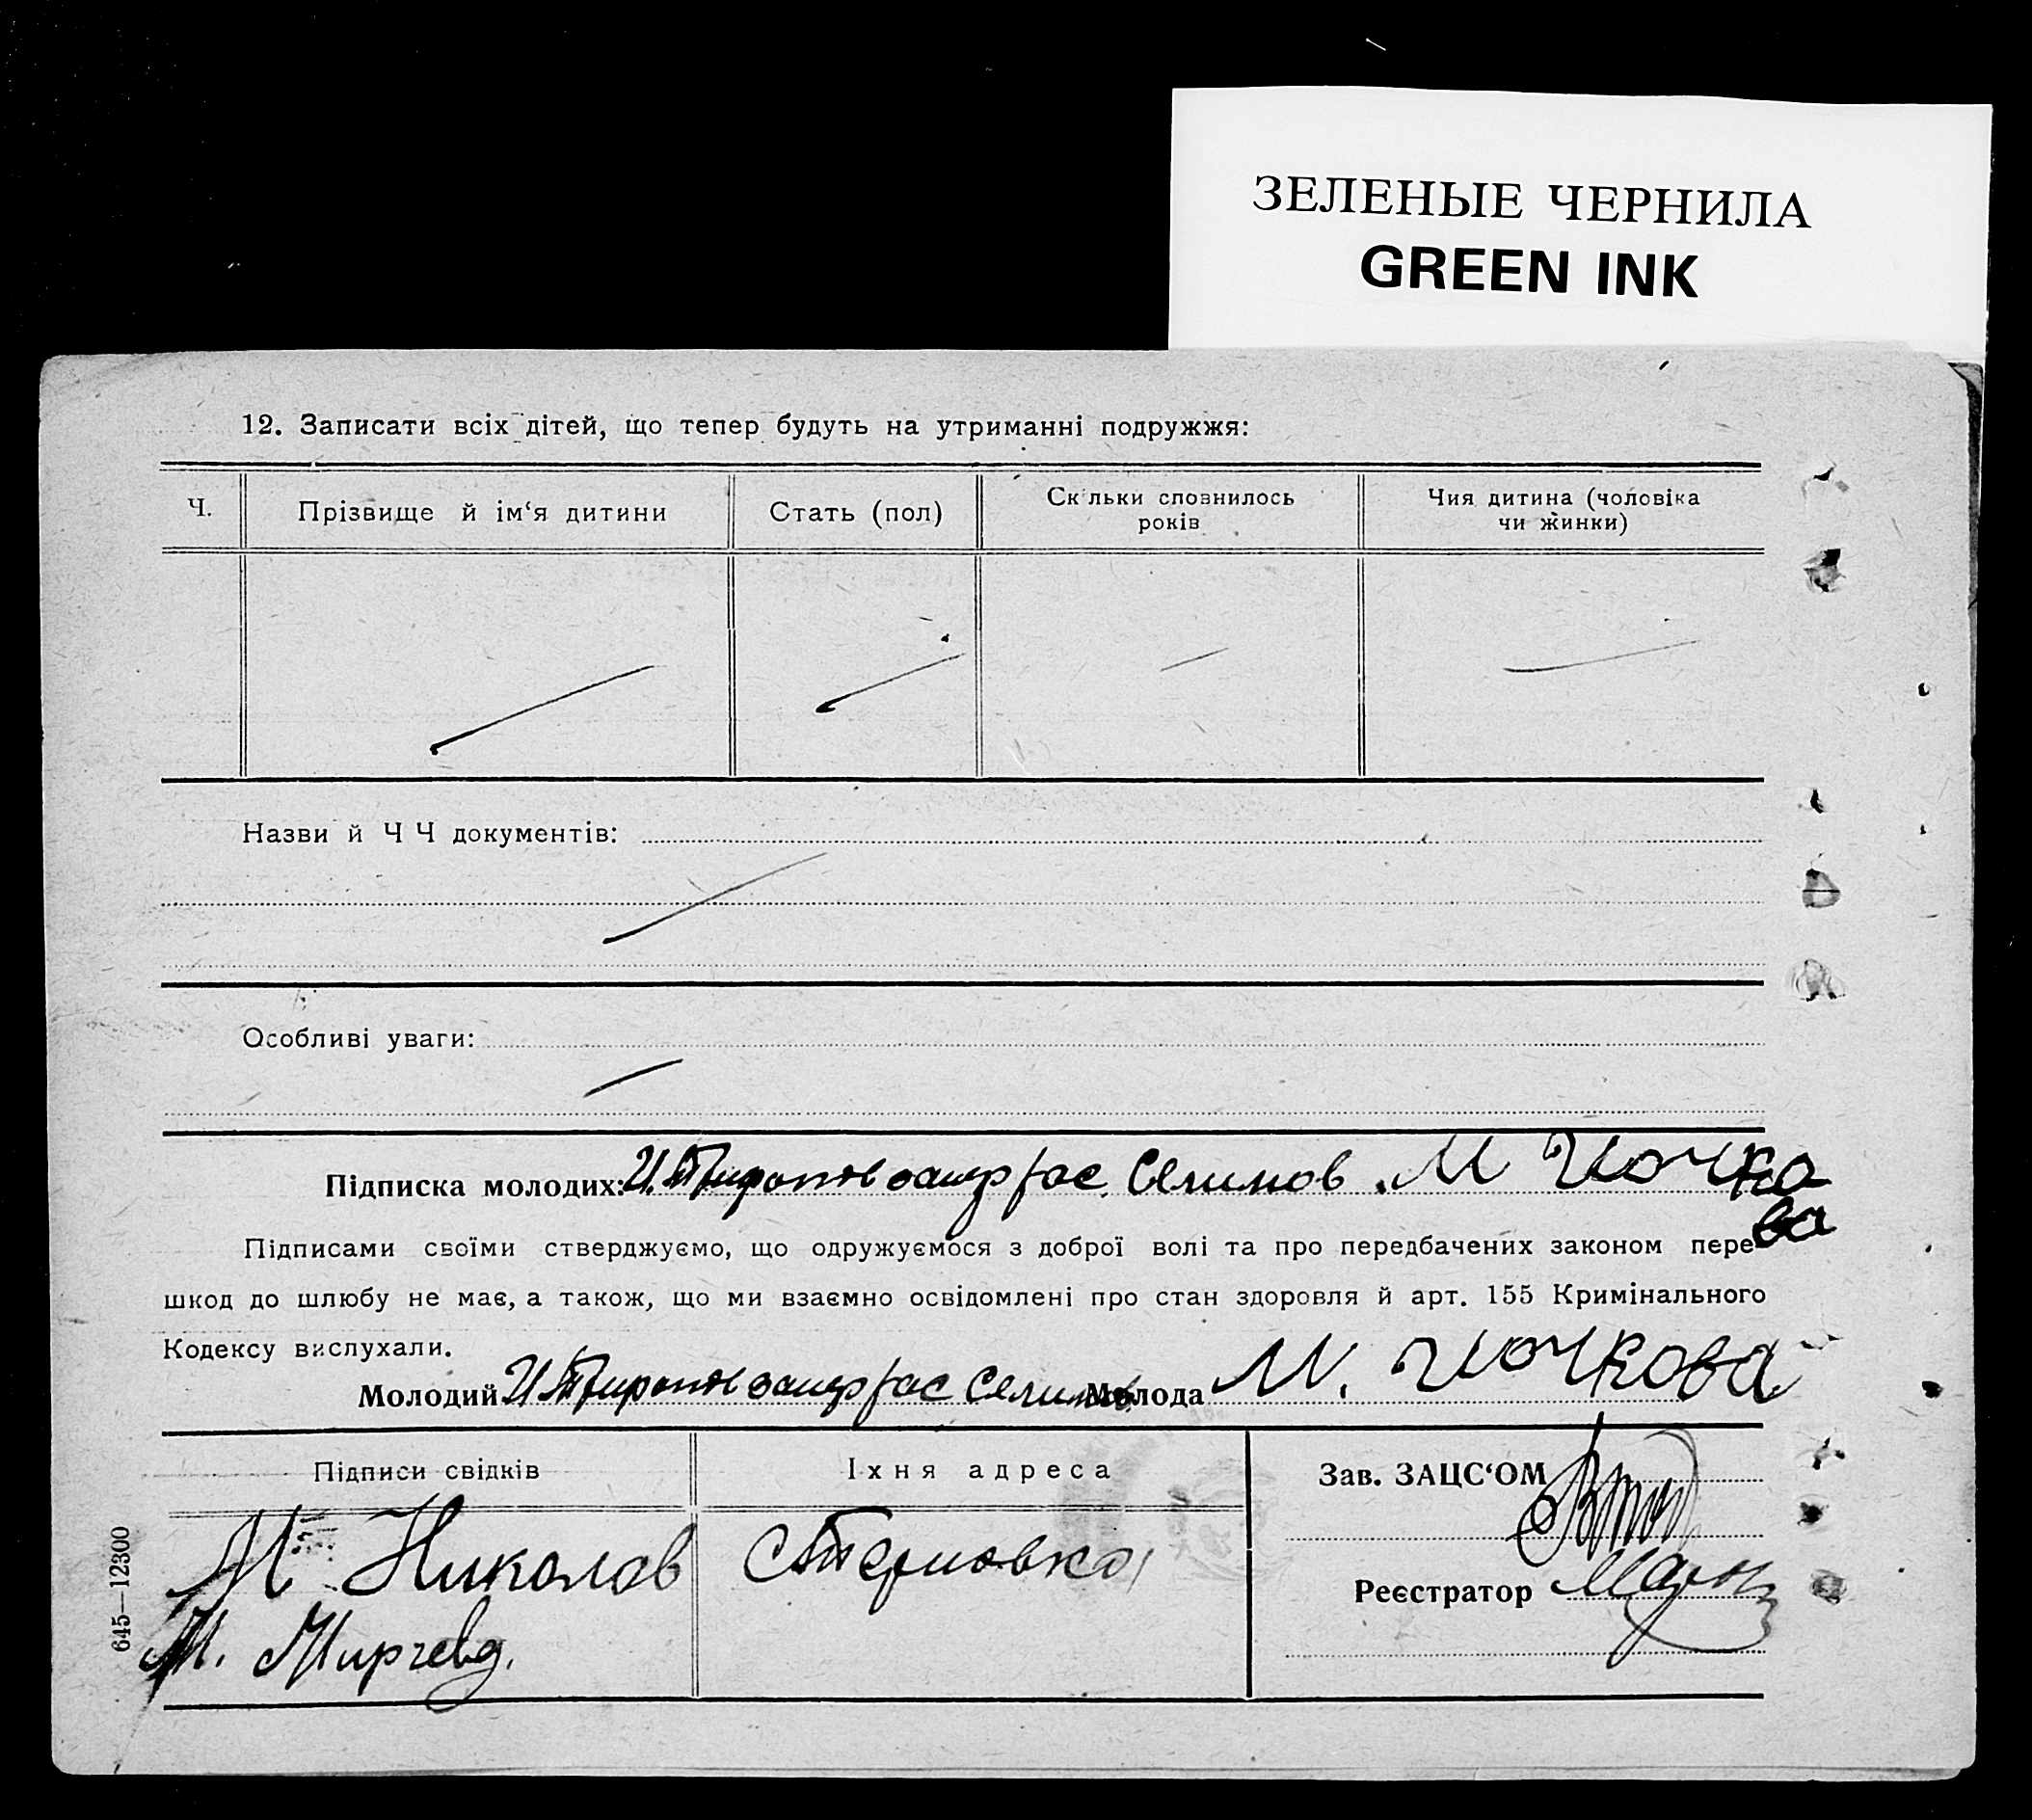 ЗЕЛЕНЫЕ ЧЕРНИЛА
GREEN INK
12. Записати всіх дітей, що тепер будуть на утриманні подружжя:
Ч.
Прізвище й ім‘я дитини
Стать (пол)
Скільки сповнилось
років
Чия дитина (чоловіка
чи жинки)
Назви й Ч Ч документів:
Особливі уваги:
Підписка молодих: Селимов. М Чочко
ва
Підписами своїми стверджуємо, що одружуємося з доброї волі та про передбачених законом пере
шкод до шлюбу не має, а також, що ми взаємно освідомлені про стан здоровля й арт. 155 Кримінального
Кодексу вислухали.
Молодий Селимов Молода М. Чочкова
Підписи свідків
Їхня адреса
Зав. ЗАЦС‘ОМ
Н Николов
с Терновка
Реєстратор
М. Мирчева.
645—12300